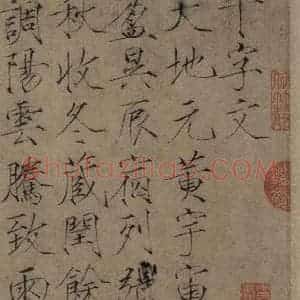 千字文
天地元黃宇宙
盈昃辰宿列張
秋收冬藏閏餘
調陽雲騰致雨
Shufaziliao.com